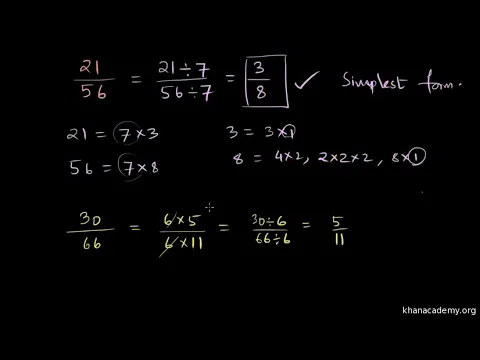 21/56 = 21÷7/56÷7 = 3/8 ✓ Simplest form.
21 = 7×3 3 = 3×1
56 = 7×8 8 = 4×2, 2×2×2, 8×1
30/66 = 6×5/6×11 = 30÷6/66÷6 = 5/11
khanacademy.org